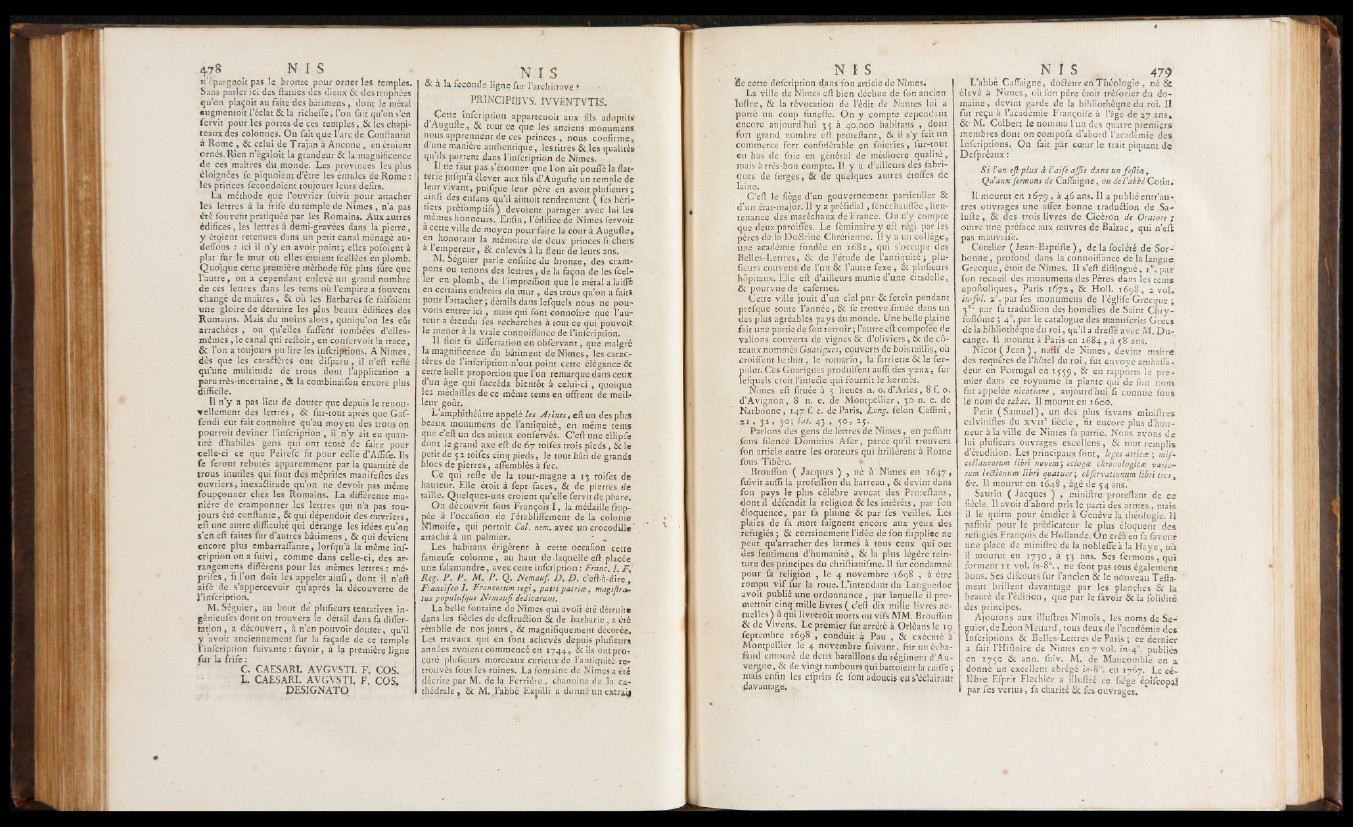 478 N I S
n'épargnoit pas le bronze pour orner les temples.
Sans parler ici des statues des dieux & des trophées
qu'on plaçoit au faîte des bâtimens, dont le métal
augmentoit l'éclat & la richesse, l'on sait qu'on s'en
servit pour les portes de ces temples, & les chapi-
teaux des colonnes. On sait que l'arc de Constantin
à Rome, & celui de Trajan à Ancone, en étoient
ornés. Rien n'égaloit la grandeur & la magnificence
de ces maîtres du monde. Les provinces les plus
éloignées se piquoient d'être les émules de Rome :
les princes secondoient toujours leurs desirs.
La méthode que l'ouvrier suivit pour attacher
les lettres à la frise du temple de Nimes, n'a pas
été souvent pratiquée par les Romains. Aux autres
édifices, les lettres à demi-gravées dans la pierre,
y étoient retenues dans un petit canal ménagé au-
dessous : ici il n'y en avoit point; elles posoient à
plat sur le mur où elles étoient scellées en plomb.
Quoique cette première méthode fût plus sûre que
l'autre, on a cependant enlevé un grand nombre
de ces lettres dans les tems où l'empire a souvent
changé de maîtres, & où les Barbares se faisoient
une gloire de détruire les plus beaux édifices des
Romains. Mais du moins alors, quoiqu'on les eût
arrachées, ou qu'elles fussent tombées d'elles-
mêmes, le canal qui restoit, en conservoit la trace,
& l'on a toujours pu lire les inscriptions. A Nimes,
dès que les caractères ont disparu, il n'est resté
qu'une multitude de trous dont l'application a
paru très-incertaine, & la combinaison encore plus
difficile.
Il n'y a pas lieu de douter que depuis le renou-
vellement des lettres, & sur-tout après que Gas-
sendi eut fait connoître qu'au moyen des trous on
pourroit deviner l'inscription, il n'y ait eu quan-
tité d'habiles gens qui ont tenté de faire pour
celle-ci ce que Peiresc fit pour celle d'Assise. Ils
se seront rebutés apparemment par la quantité de
trous inutiles qui sont des méprises manifestes des
ouvriers, inexactitude qu'on ne devoit pas même
soupçonner chez les Romains. La différente ma-
nière de cramponner les lettres qui n'a pas tou-
jours été constante, & qui dépendoit des ouvriers,
est une autre difficulté qui dérange les idées qu'on
s'en est faites sur d'autres bâtimens, & qui devient
encore plus embarrassante, lorsqu'à la même ins-
cription on a suivi, comme dans celle-ci, des ar-
rangemens différens pour les mêmes lettres : mé-
prises, si l'on doit les appeler ainsi, dont il n'est
aisé de s'appercevoir qu'après la découverte de
l'inscription.
M. Séguier, au bout de plusieurs tentatives in-
génieuses dont on trouvera le détail dans sa disser-
tation, a découvert, à n'en pouvoir douter, qu'il
y avoit anciennement sur la façade de ce temple
l'inscription suivante : savoir, à la première ligne
sur la frise :
C. CAESARI. AVGVSTI. F. COS.
L. CAESARI. AVGVSTI. F. COS.
DESIGNATO
N I S
& à la seconde ligne sur l'architrave :
PRINCIPIBVS. IVVENTVTIS.
Cette inscription appartenoit aux fils adoptifs
d'Auguste, & tout ce que les anciens monumens
nous apprennent de ces princes, nous confirme,
d'une manière authentique, les titres & les qualités
qu'ils portent dans l'inscription de Nimes.
Il ne faut pas s'étonner que l'on ait poussé la flat-
terie jusqu'à élever aux fils d'Auguste un temple de
leur vivant, puisque leur père en avoit plusieurs;
ainsi des enfans qu'il aimoit tendrement (ses héri-
tiers présomptifs) devoient partager avec lui les
mêmes honneurs. Enfin, l'édifice de Nimes servoit
à cette ville de moyen pour faire la cour à Auguste,
en honorant la mémoire de deux princes si chers
à l'empereur, & enlevés à la fleur de leurs ans.
M. Séguier parle ensuite du bronze, des cram-
pons ou tenons des lettres, de la façon de les scel-
ler en plomb, de l'impression que le métal a laissé
en certains endroits du mur, des trous qu'on a faits
pour l'attacher; détails dans lesquels nous ne pou-
vons entrer ici, mais qui font connoître que l'au-
teur a étendu ses recherches à tout ce qui pouvoit
le mener à la vraie connoissance de l'inscription.
Il finit sa dissertation en observant, que malgré
la magnificence du bâtiment de Nimes, les carac-
tères de l'inscription n'ont point cette élégance &
cette belle proportion que l'on remarque dans ceux
d'un âge qui succéda bientôt à celui-ci, quoique
les médailles de ce même tems en offrent de meil-
leur goût.
L'amphithéâtre appelé les Arènes, est un des plus
beaux monumens de l'antiquité, en même tems
que c'est un des mieux conservés. C'est une ellipse
dont le grand axe est de 67 toises trois pieds, & le
petit de 52 toises cinq pieds, le tout bâti de grands
blocs de pierres, assemblés à sec.
Ce qui reste de la tour-magne a 13 toises de
hauteur. Elle étoit à sept faces, & de pierres de
taille. Quelques-uns croient qu'elle servit de phare.
On découvrit sous François I, la médaille frap-
pée à l'occasion de l'établissement de la colonie
Nîmoise, qui portoit Col. nem. avec un crocodille
attaché à un palmier.
Les habitans érigèrent à cette occasion cette
fameuse colonne, au haut de laquelle est placée
une salamandre, avec cette inscription : Franc. I. F.
Reg. P. P. M. P. Q. Nemauf. D. D. c'est-à-dire,
Francisco I. Francorum regi, patri patriæ, magistra-
tus populusque Nemausi dedicarunt.
La belle fontaine de Nimes qui avoit été détruite
dans les siècles de destruction & de barbarie, a été
rétablie de nos jours, & magnifiquement décorée.
Les travaux qui en sont achevés depuis plusieurs
années avoient commencé en 1744, & ils ont pro-
curé plusieurs morceaux curieux de l'antiquité re-
trouvés sous les ruines. La fontaine de Nimes a été
décrite par M. de la Ferrière, chanoine de la ca-
thédrale, & M. l'abbé Expilli a donné un extrait
N I S
de cette description dans son article de Nîmes.
La ville de Nimes est bien déchue de son ancien
lustre, & la révocation de l'édit de Nantes lui a
porté un coup funeste. On y compte cependant
encore aujourd'hui 35 à 40,000 habitans, dont
fort grand nombre est protestant, & il s'y fait un
commerce fort considérable en soieries, sur-tout
en bas de soie en général de médiocre qualité,
mais à très-bon compte. Il y a d'ailleurs des fabri-
ques de serges, & de quelques autres étoffes de
laine.
C'est le siège d'un gouvernement particulier &
d'un état-major. Il y a présidial, sénéchaussée, lieu-
tenance des maréchaux de France. On n'y compte
que deux paroisses. Le séminaire y est régi par les
pères de la Doctrine Chrétienne. Il y a un collège,
une académie fondée en 1682, qui s'occupe des
Belles-Lettres, & de l'étude de l'antiquité; plu-
sieurs couvens de l'un & l'autre sexe, & plusieurs
hôpitaux. Elle est d'ailleurs munie d'une citadelle,
& pourvue de casernes.
Cette ville jouit d'un ciel pur & serein pendant
presque toute l'année, & se trouve située dans un
des plus agréables pays du monde. Une belle plaine
fait une partie de son terroir; l'autre est composée de
vallons couverts de vignes & d'oliviers, & de cô-
teaux nommés Guarigues, couverts de bois taillis, où
croissent le thin, le romarin, la sarriette & le ser-
polet. Ces Guarigues produisent aussi des yeux, sur
lesquels croit l'insecte qui fournit le kermès.
Nimes est située à 5 lieues n. o. d'Arles, 8 s. o.
d'Avignon, 8 n. e. de Montpellier, 30 n. e. de
Narbonne, 147 s. e. de Paris. Long. selon Cassini,
21, 52, 30; lat. 43, 50, 25.
Parlons des gens de lettres de Nimes, en passant
sous silence Domitius Afer, parce qu'il trouvera
son article entre les orateurs qui brillèrent à Rome
sous Tibère.
Brousson (Jacques), né à Nimes en 1647,
suivit aussi la profession du barreau, & devint dans
son pays le plus célèbre avocat des Protestans,
dont il défendit la religion & les intérêts, par son
éloquence, par sa plume & par ses veilles. Les
plaies de sa mort saignent encore aux yeux des
refugiés; & certainement l'idée de son supplice ne
peut qu'arracher des larmes à tous ceux qui ont
des sentimens d'humanité, & la plus légère tein-
ture des principes du christianisme. Il fut condamné
pour sa religion, le 4 novembre 1698, à être
rompu vif sur la roue. L'intendant du Languedoc
avoit publié une ordonnance, par laquelle il pro-
mettoit cinq mille livres (c'est dix mille livres ac-
tuelles) à qui livreroit morts ou vifs MM. Brousson
& de Vivens. Le premier fut arrêté à Orléans le 19
septembre 1698, conduit à Pau, & exécuté à
Montpellier le 4 novembre suivant, sur un écha-
faud entouré de deux bataillons du régiment d'Au-
vergne, & de vingt tambours qui battoient la caisse;
mais enfin les esprits se sont adoucis en s'éclairant
davantage.
N I S 479
L'abbé Cassaigne, docteur en Théologie, né &
élevé à Nimes, où son père étoit trésorier du do-
maine, devint garde de la bibliothèque du roi. Il
fut reçu à l'académie Françoise à l'âge de 27 ans,
& M. Colbert le nomma l'un des quatre premiers
membres dont on composa d'abord l'académie des
Inscriptions. On sait par cœur le trait piquant de
Despréaux :
Si l'on est plus à l'aise assis dans un festin,
Qu'aux sermons de Cassaigne, ou de l'abbé Cotin.
Il mourut en 1679, à 46 ans. Il a publié entr'au-
tres ouvrages une assez bonne traduction de Sa-
luste, & des trois livres de Cicéron de Oratore;
outre une préface aux œuvres de Balzac, qui n'est
pas mauvaise.
Cotelier (Jean-Baptiste), de la société de Sor-
bonne, profond dans la connoissance de la langue
Grecque, étoit de Nimes. Il s'est distingué, 1°. par
son recueil des monumens des Pères dans les tems
apostoliques, Paris 1672, & Holl. 1698, 2 vol.
in-fol. 2°. par ses monumens de l'église Grecque;
3°. par sa traduction des homélies de Saint Chry-
sostôme; 4°. par le catalogue des manuscrits Grecs
de la bibliothèque du roi, qu'il a dressé avec M. Du-
cange. Il mourut à Paris en 1684, à 58 ans.
Nicot (Jean), natif de Nimes, devint maître
des requêtes de l'hôtel du roi, fut envoyé ambassa-
deur en Portugal en 1559, & en rapporta le pre-
mier dans ce royaume la plante qui de son nom
fut appelée nicotiane, aujourd'hui si connue sous
le nom de tabac. Il mourut en 1600.
Petit (Samuel), un des plus savans ministres
calvinistes du XVIIe siècle, fit encore plus d'hon-
neur à la ville de Nimes sa patrie. Nous avons de
lui plusieurs ouvrages excellens, & tout remplis
d'érudition. Les principaux sont, leges atticæ; mis-
cellaneorum libri novem; eclogæ chronologicæ vario-
rum lectionum libri quatuor; observationum libri tres,
&c. Il mourut en 1648, âgé de 54 ans.
Saurin (Jacques), ministre protestant de ce
siècle. Il avoit d'abord pris le parti des armes, mais
il le quitta pour étudier à Genève la théologie. Il
passoit pour le prédicateur le plus éloquent des
refugiés François de Hollande. On créa en sa faveur
une place de ministre de la noblesse à la Haye, où
il mourut en 1730, à 53 ans. Ses sermons, qui
forment 11 vol. in-8°., ne sont pas tous également
bons. Ses discours sur l'ancien & le nouveau Testa-
ment brillent davantage par les planches & la
beauté de l'édition, que par le savoir & la solidité
des principes.
Ajoutons aux illustres Nimois, les noms de Sé-
guier, de Léon Menard, tous deux de l'académie des
Inscriptions & Belles-Lettres de Paris; ce dernier
a fait l'Histoire de Nimes en 7 vol. in-4°. publiés
en 1750 & ann. suiv. M. de Maucomble en a
donné un excellent abrégé in-8°. en 1767. Le cé-
lèbre Esprit Flechier a illustré ce siège épiscopal
par ses vertus, sa charité & ses ouvrages.